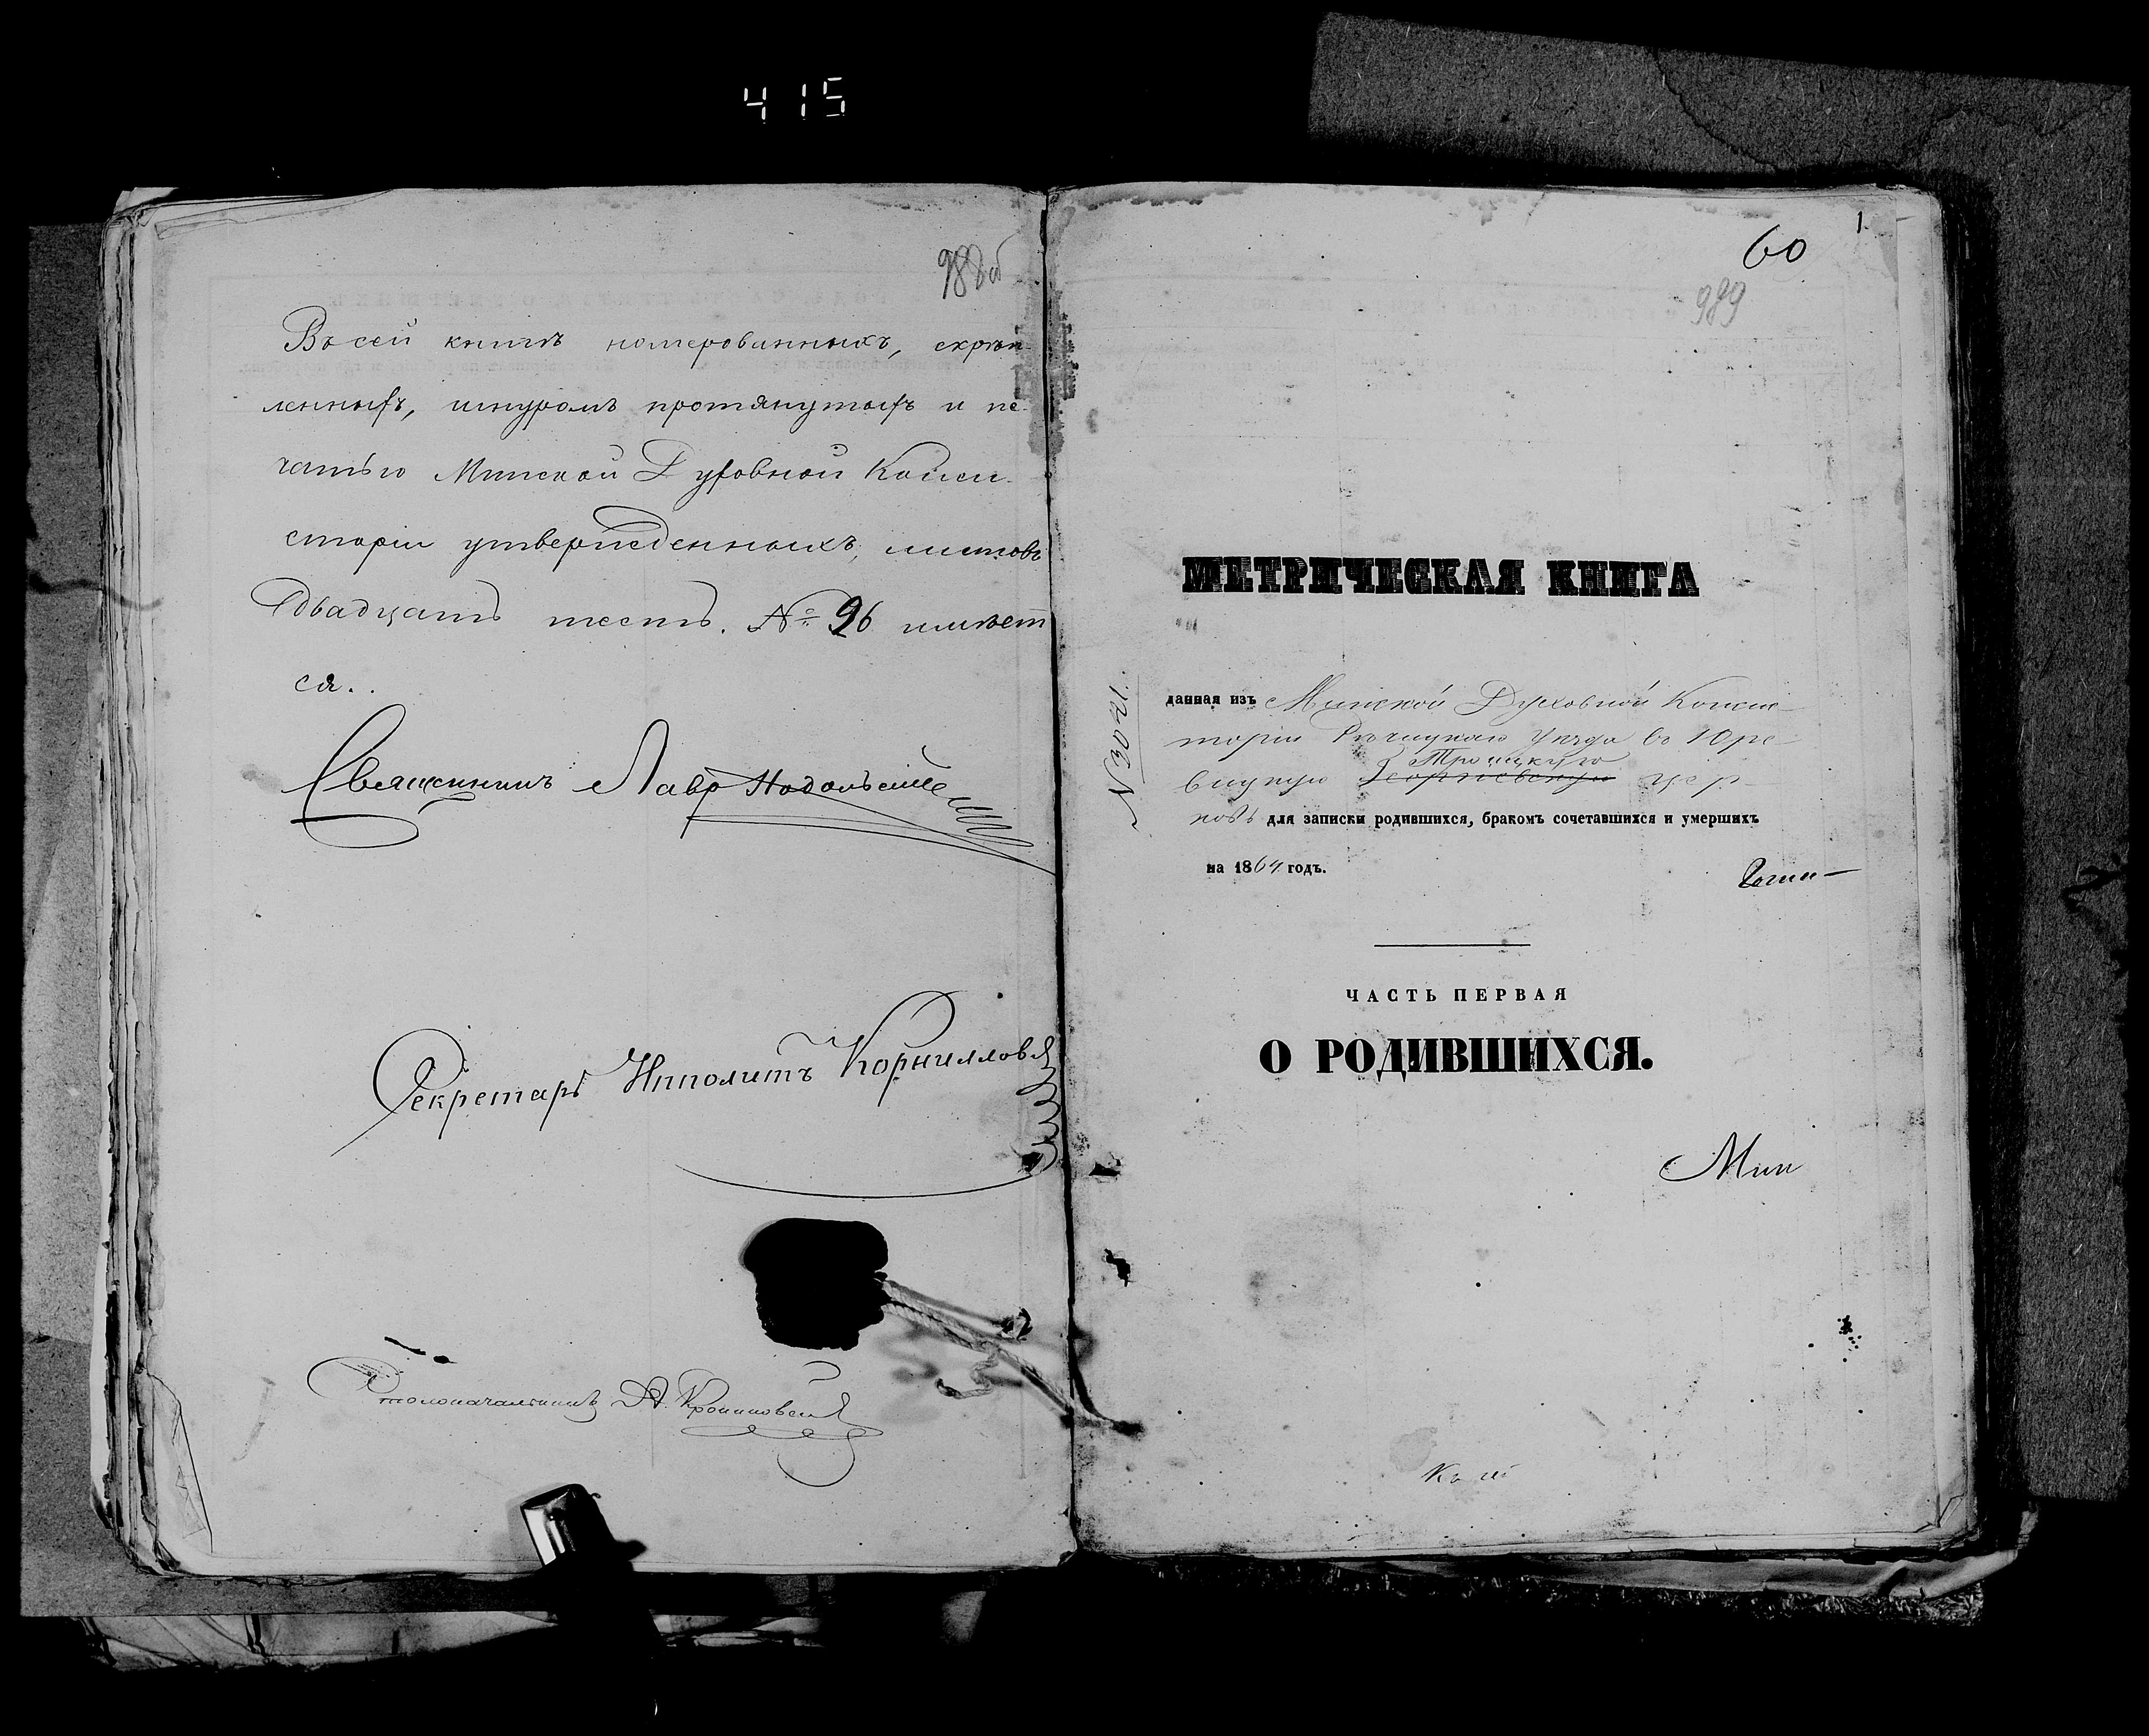 415
988об
Въ сей книгѣ номерованныхъ, скрѣп-
ленныхъ, шнуромъ протянутыхъ и пе-
чатью Минской Духовной Конси-
сторіи утвержденныхъ, листовъ
двадцать шесть. № 26 имѣет
ся..
Священникъ Лавръ
Секретарь Ипполитъ Корниловъ
Столоначальникъ А.
1.
60
989
МЕТРИЧЕСКАЯ КНИГА
N 3021.
данная изъ Минской Духовной Конси-
сторіи Рѣчицкаго Уѣзда въ Юре-
Троицкую
вицкую Георгіевскую цер-
ковь для записки родившихся, бракомъ сочетавшихся и умершихъ
на 1864 годъ.
ЧАСТЬ ПЕРВАЯ
О РОДИВШИХСЯ.
Мин
Къ сей